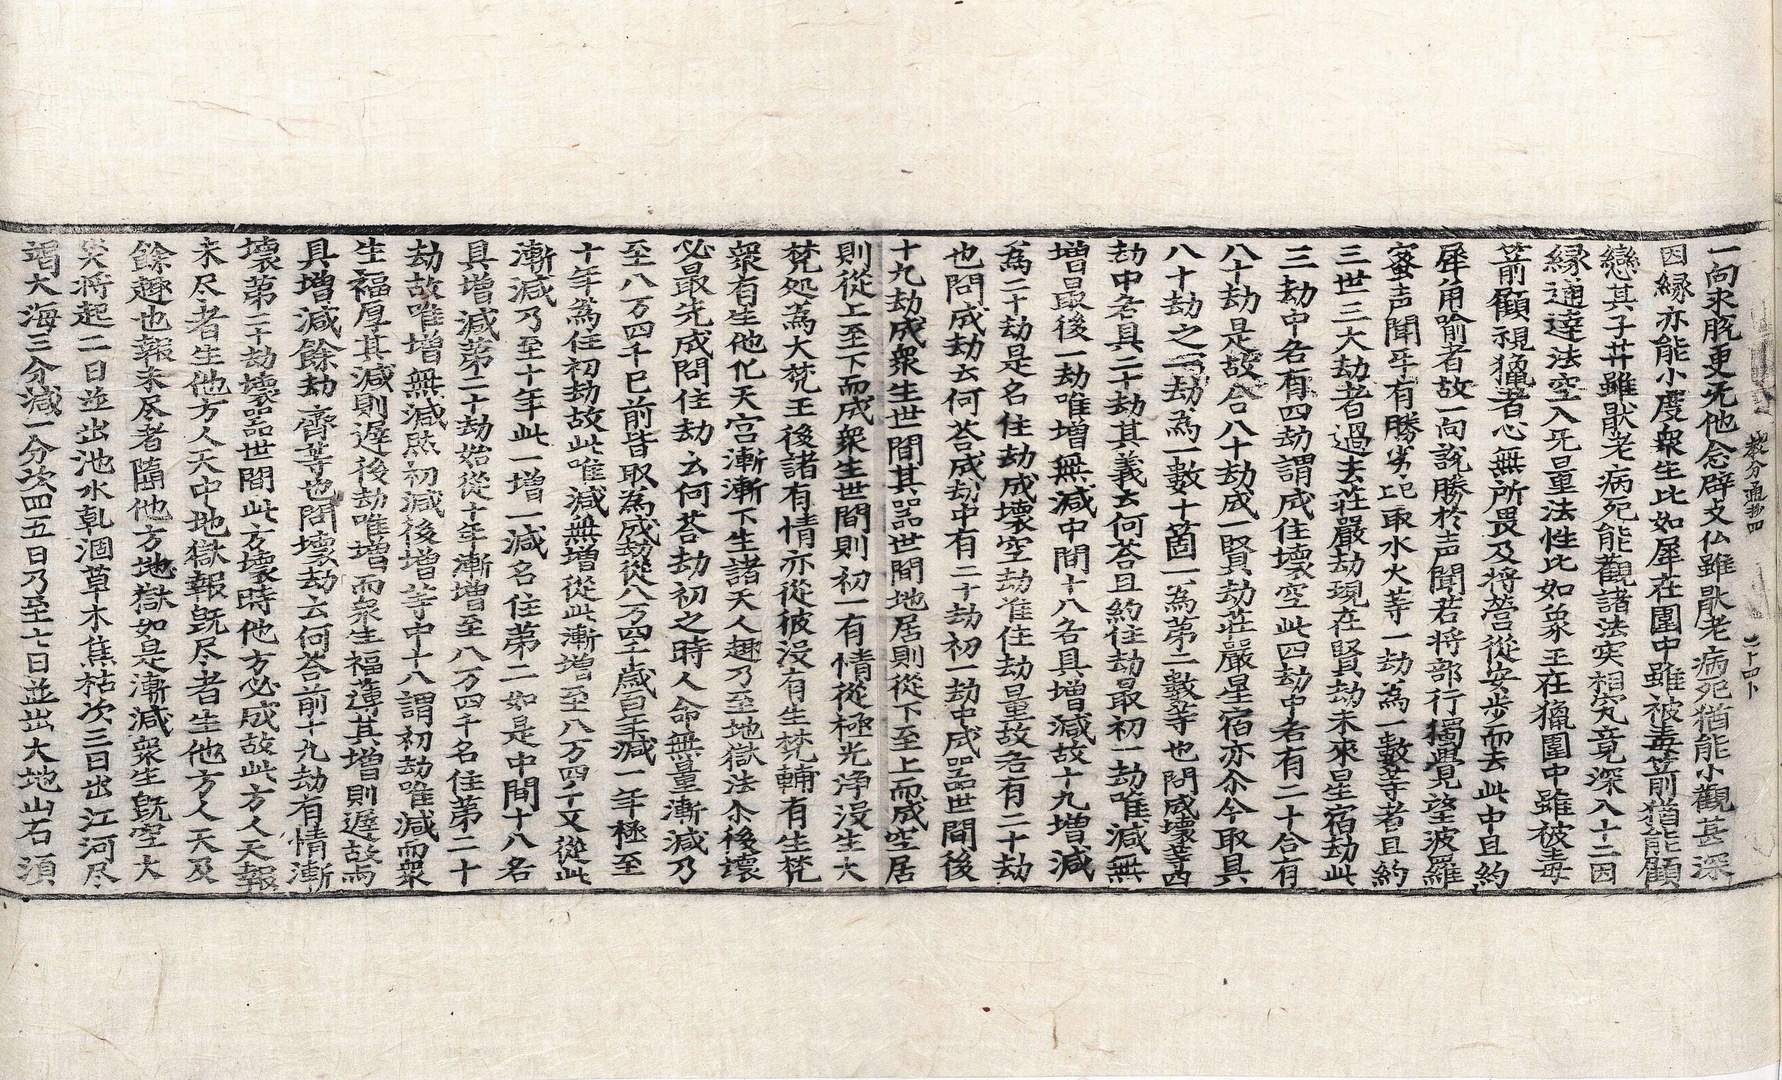 教分通抄四 二十四卜
一向求脫更无他念辟支仏雖猒老病死猶能小觀甚深
因縁亦能小度衆生比如犀在圍中雖被毒箭猶能顧
戀其子并雖猒老病死能觀諸法实相究竟深入十二因
縁通達法空入无量法性比如象王在獵圍中雖被毒
箭顧視獵者心無所畏及将營從安步而去此中且約
犀角喻者故一向說勝於声聞若将部行獨覺望波羅
蜜声聞乎有勝劣記取水火等一劫為一數等者且約
三世三大劫者過去荘嚴劫現在賢劫未來星宿劫此
三劫中各有四劫謂成住壞空此四劫中各有二十合有
八十劫是故合八十劫成一賢劫荘嚴星宿亦尒今取具
八十劫之一劫為一數十箇一為第二數等也問成壞等四
劫中各具二十劫其義云何荅且約住劫最初一劫唯減無
增最後一劫唯增無減中間十八各具增減故十九增減
為二十劫是名住劫成壞空劫准住劫量故各有二十劫
也問成劫云何荅成劫中有二十劫初一劫中成器世間後
十九劫成衆生世間其器世間地居則從下至上而成空居
則從上至下而成衆生世間則初一有情從極光淨沒生大
梵処為大梵王後諸有情亦從彼沒有生梵輔有生梵
衆有生他化天宮漸漸下生諸天人趣乃至地獄法尒後壞
必最先成問住劫云何荅劫初之時人命無量漸減乃
至八万四千已前皆取為成劫從八万四千歲百年減一年極至
十年為住初劫故此唯減無增從此漸增至八万四千又從此
漸減乃至十年此一增一減名住第二如是中間十八各
具增減第二十劫始從十年漸增至八万四千名住第二十
劫故唯增無減然初減後增等中十八謂初劫唯減而衆
生福厚其減則遲後劫唯增而衆生福薄其增則遲故与
具增減餘劫齊等也問壞劫云何荅前十九劫有情漸
壞第二十劫壞器世間此方壞時他方必成故此方人天報
未尽者生他方人天中地獄報既尽者生他方人天及
餘趣也報未尽者隨他方地獄如是漸減衆生既空大
災将起二日並出池水乹涸草木焦枯次三日出江河尽
竭大海三分減一分㳒四五日乃至七日並出大地山石須